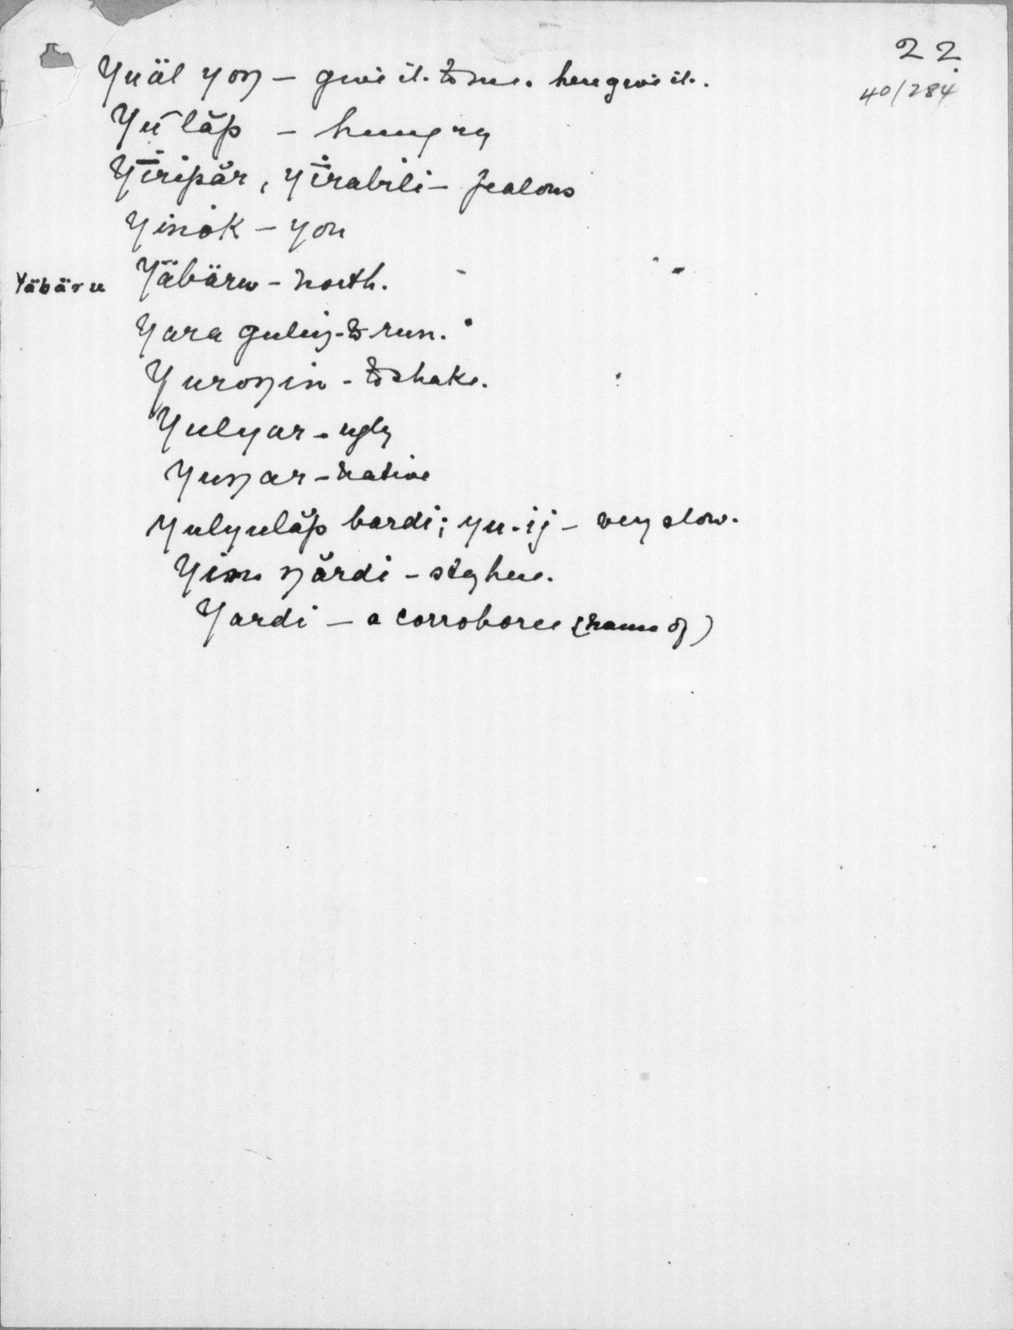 22
40/284
Yuäl yoŋ – give it to me. here give it.
Yū-lăp – hungry
Yīripăr, yīrabili – jealous
Yinok – you
Yäbäru Yäbäru – north.
Yara guluŋ – to run.
Yuroŋin – to shake.
Yulyar – ugly
Yuŋar – native
Yulyulăp bardi; yu-ij – very slow.
Yim ŋărdi – stay here.
Yardi – a corroboree (name of)